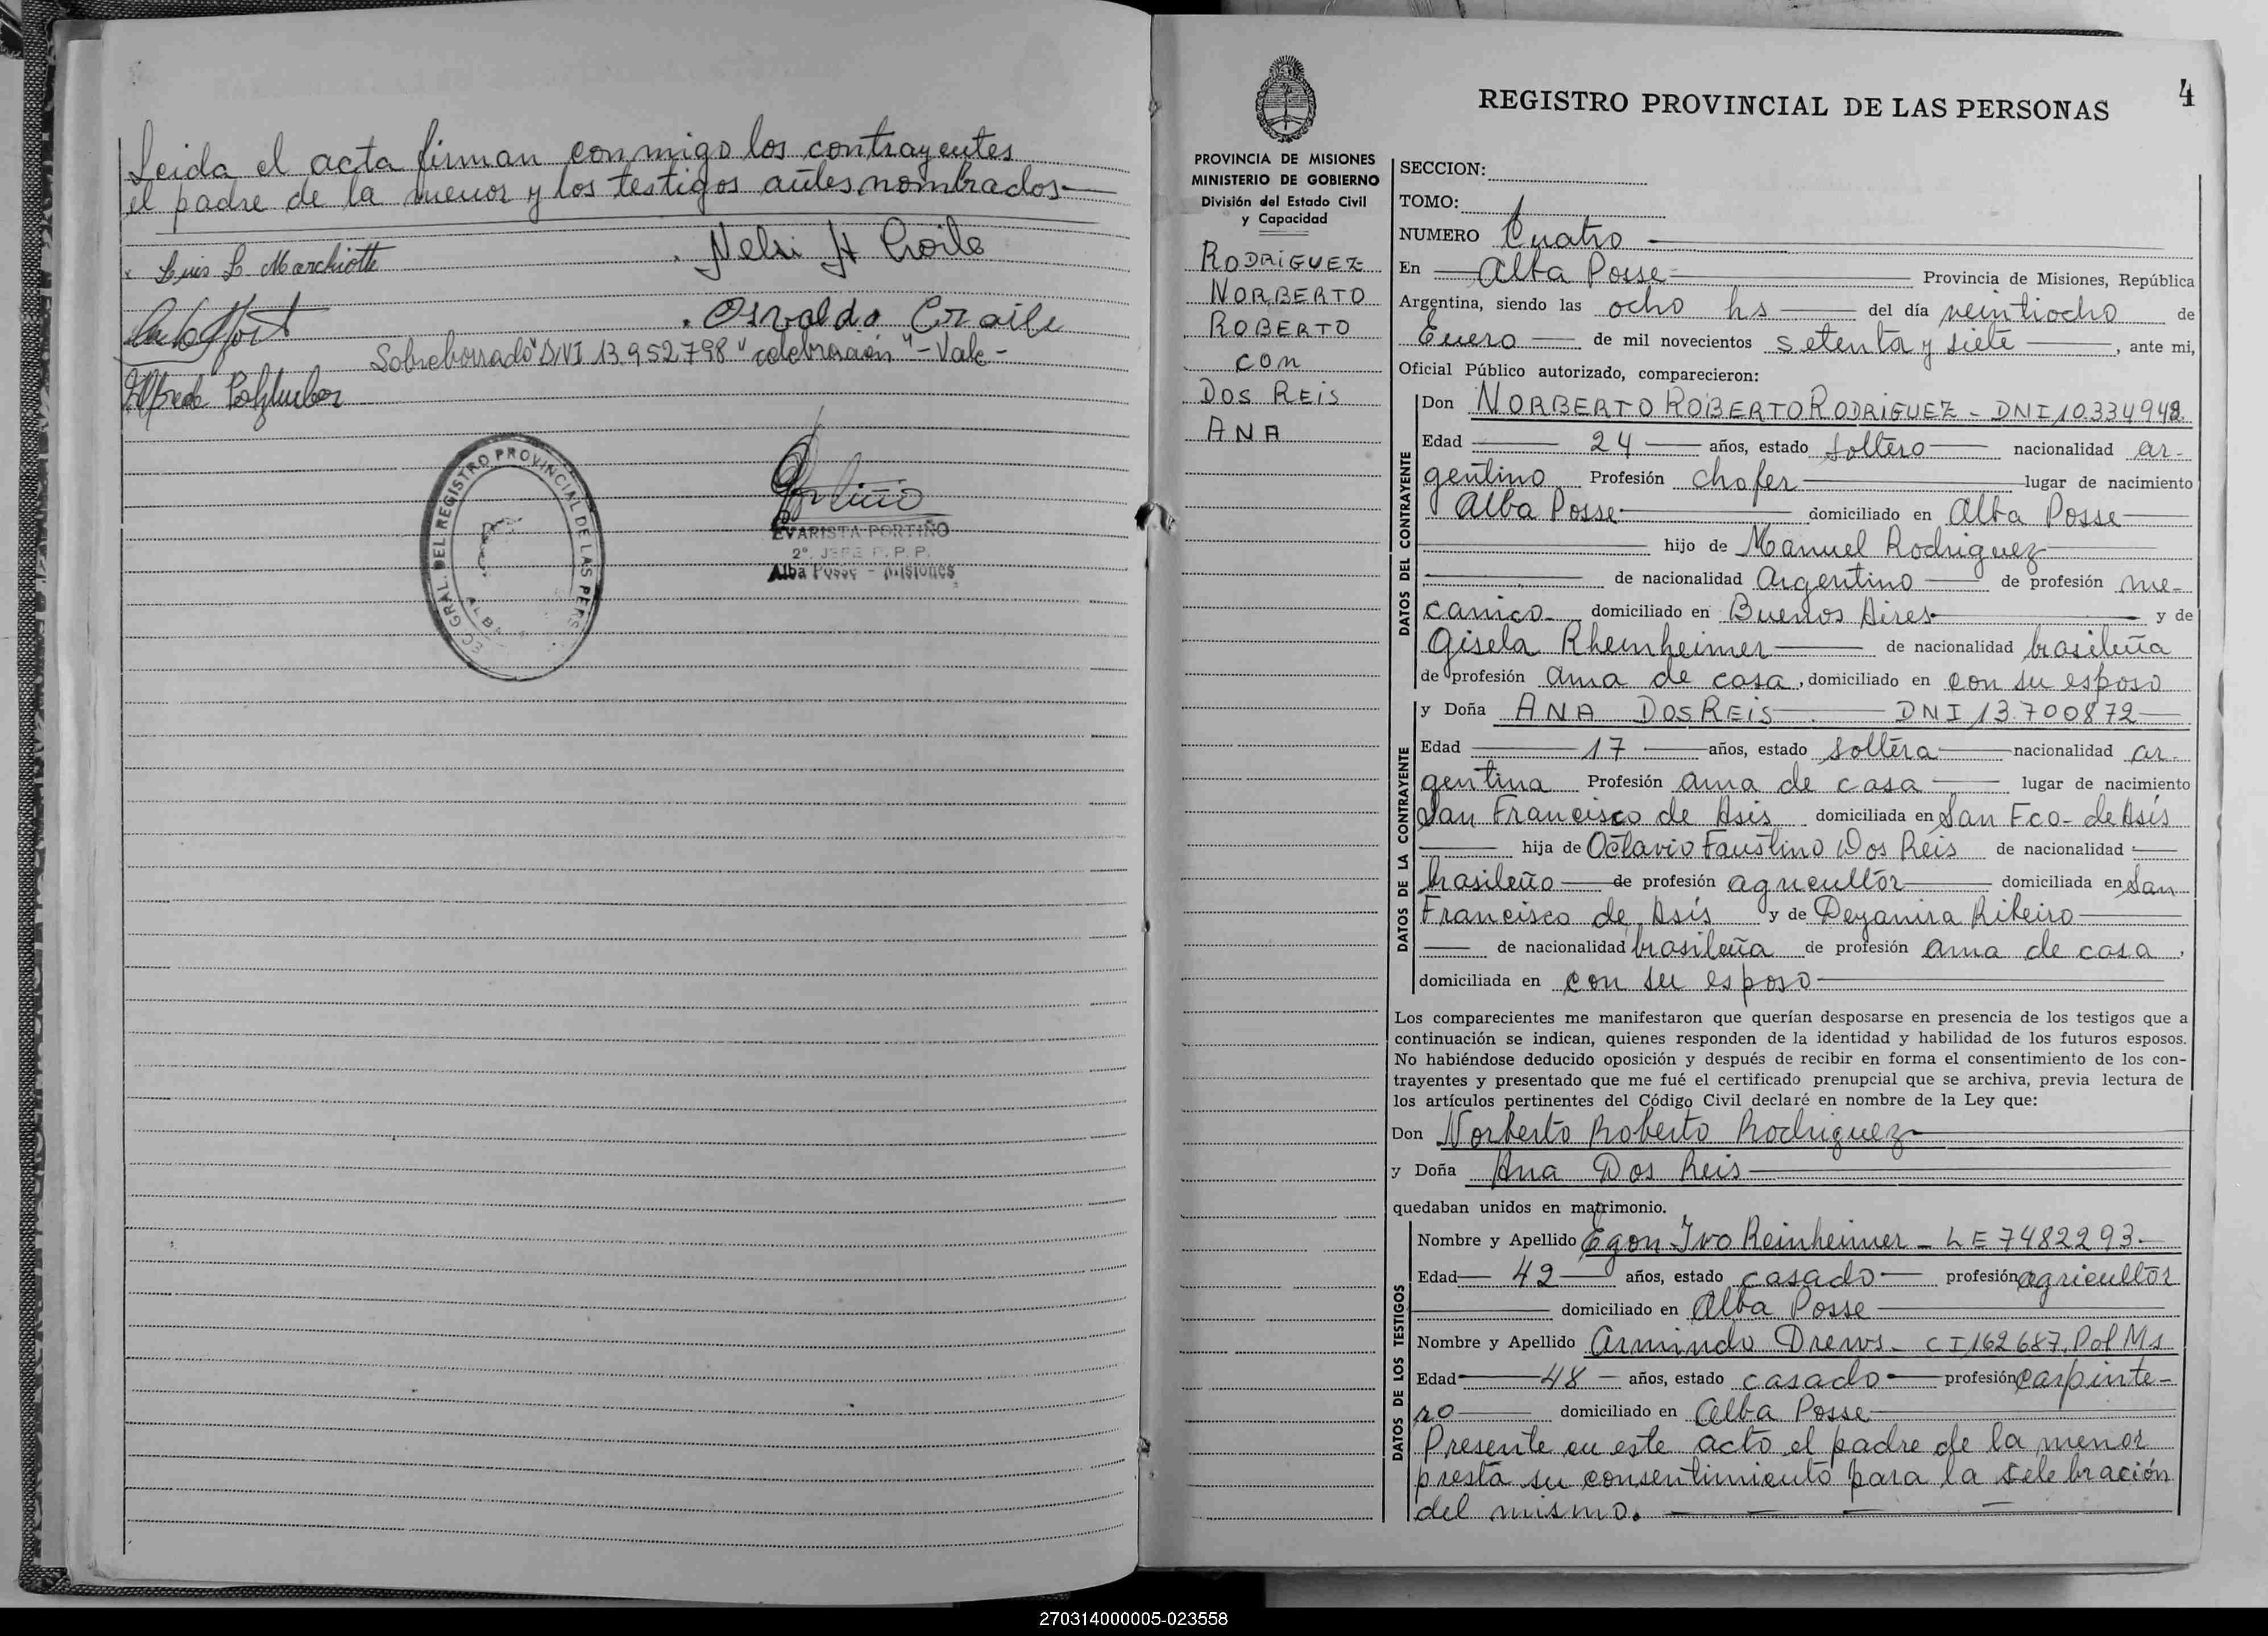 Leida el acta firman conmigo los contrayentes
el padre de la menor y los testigos antes nombrados
Luis L Marchiotti
Nelsi H
Osvaldo
Sobreborrado "DNI 13.952.798" "celebración" - Vale -
Alfredo
REGISTRO PROVINCIAL DE LAS PERS
ALBA
EVARISTA PORTIÑO
2º. JEFE R. P. P.
Alba Posse - Misiones
4
REGISTRO PROVINCIAL DE LAS PERSONAS
PROVINCIA DE MISIONES
MINISTERIO DE GOBIERNO
División del Estado Civil
y Capacidad
RODRIGUEZ
NORBERTO
ROBERTO
CON
DOS REIS
ANA
SECCION:
TOMO:
NUMERO Cuatro
En Alba Posse Provincia de Misiones, República
Argentina, siendo las ocho hs del día veintiocho de
Enero de mil novecientos setenta y siete, ante mi,
Oficial Público autorizado, comparecieron:
DATOS DEL CONTRAYENTE
Don NORBERTO ROBERTO RODRIGUEZ - DNI 10.334948
Edad 24 años, estado soltero nacionalidad ar-
gentino Profesión chofer lugar de nacimiento
Alba Posse domiciliado en Alba Posse
hijo de Manuel Rodriguez
de nacionalidad Argentino de profesión me-
canico domiciliado en Buenos Aires y de
Gisela Rheinheimer de nacionalidad brasileña
de profesión ama de casa, domiciliado en con su esposo
DATOS DE LA CONTRAYENTE
y Doña ANA DOS REIS DNI 13.700872
Edad 17 años, estado soltera nacionalidad ar-
gentina Profesión ama de casa lugar de nacimiento
San Francisco de Asis domiciliada en San Fco- de Asís
hija de Octavio Faustino Dos Reis de nacionalidad
brasileño de profesión agricultor domiciliada en San
Francisco de Asís y de Deyanira Ribeiro
de nacionalidad brasileña de profesión ama de casa,
domiciliada en con su esposo
Los comparecientes me manifestaron que querían desposarse en presencia de los testigos que a
continuación se indican, quienes responden de la identidad y habilidad de los futuros esposos.
No habiéndose deducido oposición y después de recibir en forma el consentimiento de los con-
trayentes y presentado que me fué el certificado prenupcial que se archiva, previa lectura de
los artículos pertinentes del Código Civil declaré en nombre de la Ley que:
Don Norberto Roberto Rodriguez
y Doña Ana Dos Reis
quedaban unidos en matrimonio.
DATOS DE LOS TESTIGOS
Nombre y Apellido Egon Ivo Reinheimer - LE 7482293
Edad 42 años, estado casado profesión agricultor
domiciliado en Alba Posse
Nombre y Apellido Armindo Drews - CI 162687, Pol Ms
Edad 48 años, estado casado profesión carpinte-
ro domiciliado en Alba Posse
Presente en este acto el padre de la menor
presta su consentimiento para la celebración
del mismo.
270314000005-023558